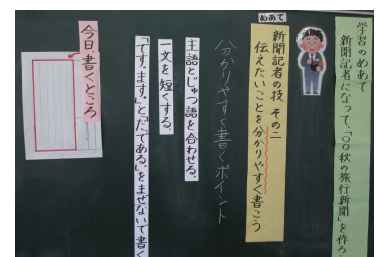 学習のめあて
新聞記者になって、「〇〇秋の旅行新聞」を作ろ
めあて
新聞記者の技 その二
伝えたいことを分かりやすく書こう
分かりやすく書くポイント
主語とじゅつ語を合わせる。
一文を短くする。
「です。ます。」と「だ。である。」をまぜないで書く
今日、書くところ